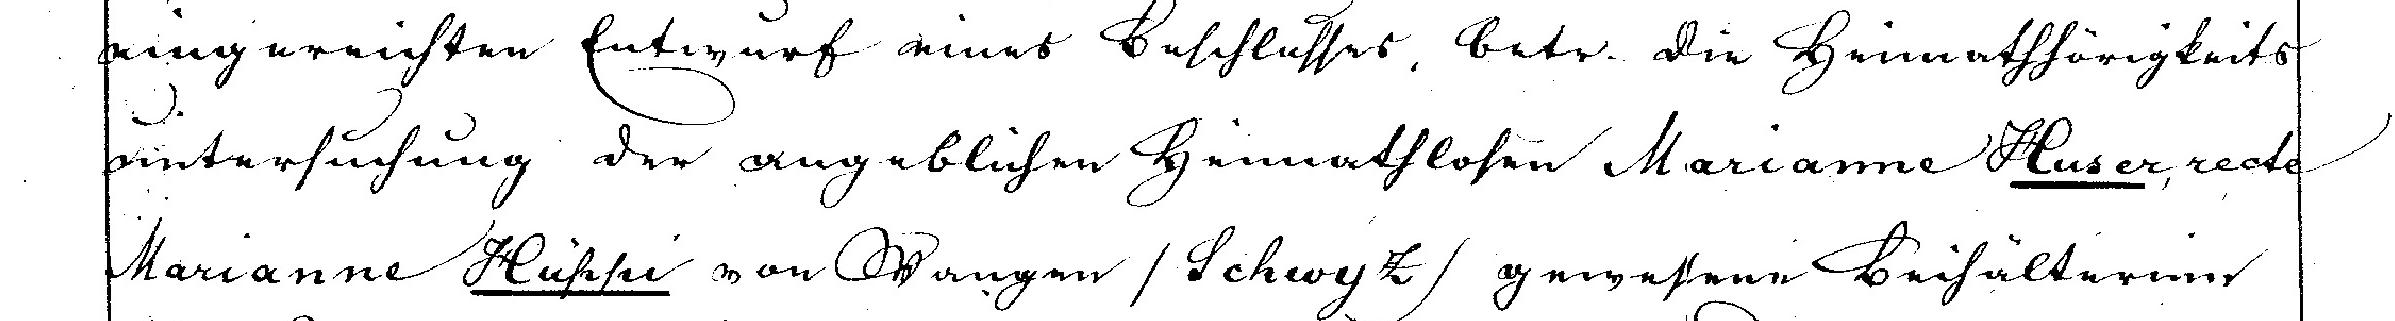 eingereichten Entwurf eines Beschlusses, betr. die Heimathhörigkeits
untersuchung der angeblichen Heimathlosen Marianne Huser, recte
Marianne Hüppi von Wangen /Schwytz/ gewesene Beihälterinn